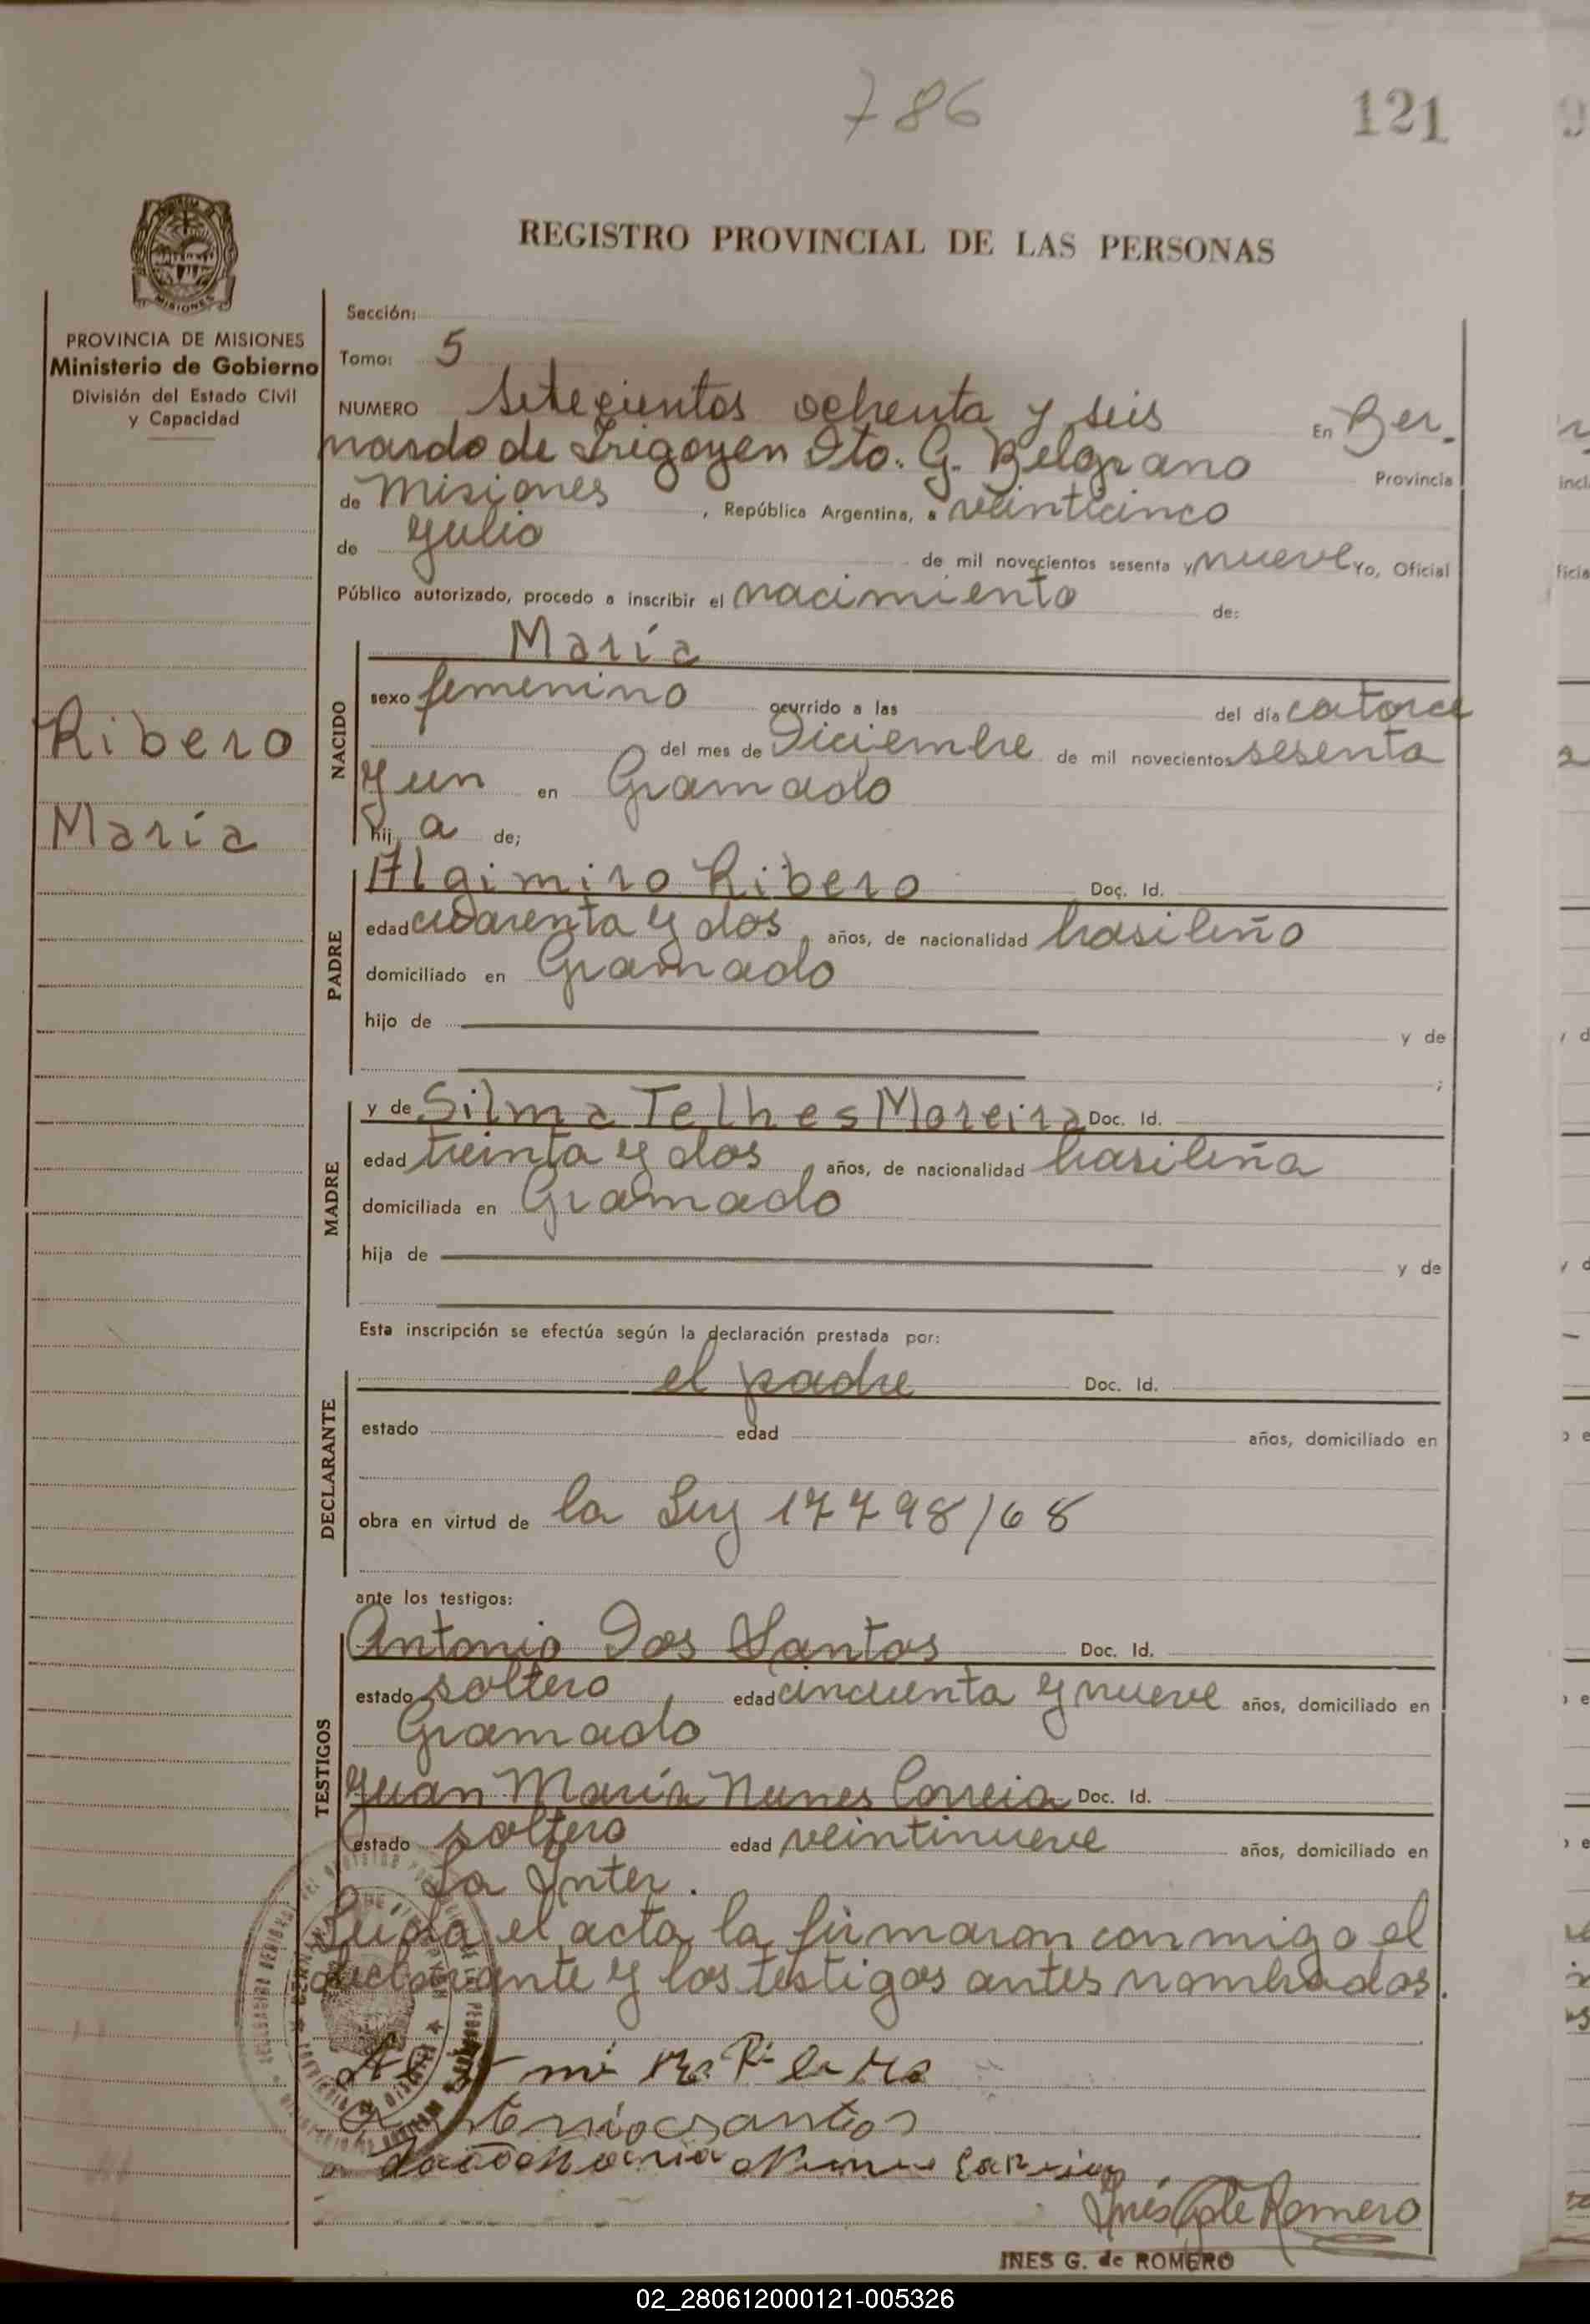 786
121
REGISTRO PROVINCIAL DE LAS PERSONAS
MISIONES
PROVINCIA DE MISIONES
Ministerio de Gobierno
División del Estado Civil
y Capacidad
Ribero
María
Sección:
Tomo: 5
NUMERO Setecientos ochenta y seis En Ber-
nardo de Irigoyen Dto. G. Belgrano Provincia
de Misiones, República Argentina, a veinticinco
de Julio de mil novecientos sesenta y nueve Yo, Oficial
Público autorizado, procedo a inscribir el nacimiento de:
NACIDO
María
sexo femenino ocurrido a las del día catorce
del mes de Diciembre de mil novecientos sesenta
y un en Gramado
hij a de;
PADRE
Algimiro Ribero Doc. Id.
edad cuarenta y dos, años, de nacionalidad brasileño
domiciliado en Gramado
hijo de y de
;
MADRE
y de Silma Telhes Moreira Doc. Id.
edad treinta y dos, años, de nacionalidad brasileña
domiciliada en Gramado
hija de y de
Esta inscripción se efectúa según la declaración prestada por:
DECLARANTE
el padre Doc. Id.
estado edad años, domiciliado en
obra en virtud de la Ley 17798/68
ante los testigos:
TESTIGOS
Antonio Dos Santos Doc. Id.
estado soltero, edad cincuenta y nueve años, domiciliado en
Gramado
Juan María Nunes Correia Doc. Id.
estado soltero edad veintinueve años, domiciliado en
La Inter.
Leída el acta la firmaron conmigo el
declarante y los testigos antes nombrados.
Inés G de Romero
INES G. de ROMERO
02_280612000121-005326